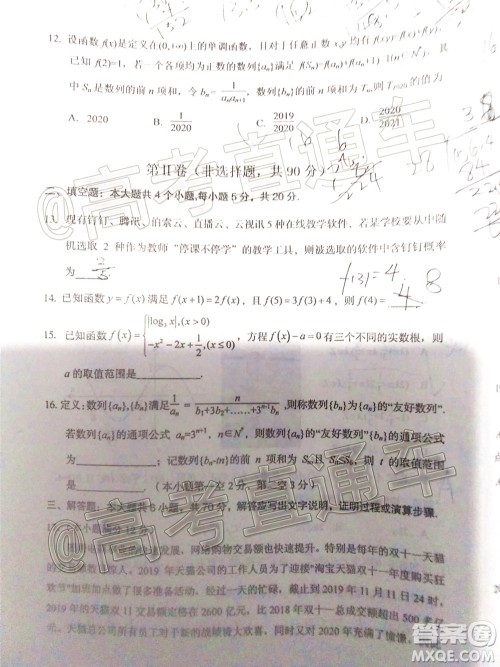 12. 设函数 f(x)是定义在(0,+∞)上的单调函数，且对于任意正数 x,y 均有 f(x·y)=f(x)+f(y).
已知 f(2)=1，若一个各项均为正数的数列{aₙ}满足 f(Sₙ)=f(aₙ)+f(aₙ+1)-1(n∈N*)，
中 Sₙ是数列的前 n 项和，令 bₙ= 1/(aₙaₙ₊₁)，数列{bₙ}的前 n 项和为 Tₙ,则 T₂₀₂₀的值为
A. 2020 B. 1/2020 C. 2019/2020 D. 2020/2021
第Ⅱ卷（非选择题，共 90 分）
二、填空题：本大题共 4 个小题,每小题 5 分，共 20 分.
13. 现有钉钉、腾讯、伯索云、直播云、云视讯 5 种在线教学软件，若某学校要从中随
机选取 2 种作为教师“停课不停学”的教学工具，则被选取的软件中含钉钉概率
为 2/5
f(3)=4. 8
14. 已知函数 y=f(x)满足 f(x+1)=2f(x)，且 f(5)=3f(3)+4，则 f(4)= 4
15. 已知函数 f(x)={|log₃x|,(x>0) -x²-2x+1/2,(x≤0)，方程 f(x)-a=0 有三个不同的实数根，则
a 的取值范围是
16. 定义：数列{aₙ},{bₙ}满足 1/aₙ = n/(b₁+3b₂+……+3ⁿ⁻¹bₙ),则称数列{bₙ}为{aₙ}的“友好数列”.
若数列{aₙ}的通项公式 aₙ=3ⁿ⁺¹，n∈N*,则数列{aₙ}的“友好数列”{bₙ}的通项公式
为 ；记数列{bₙ-tn}的前 n 项和为 Sₙ且 Sₙ≤S₆，则 t 的取值范围
是 （本小题第一空 2 分，第二空 3 分）
三、解答题：本大题共 6 小题，共 70 分，解答应写出文字说明，证明过程或演算步骤.
网络购物交易额也快速提升。特别是每年的双十一天猫
2019 年天猫公司的工作人员为了迎接“淘宝天猫双十一年度购买狂
欢节”加班加点做了很多准备活动。经过一天的忙碌，截止到 2019 年 11 月 11 日 24 时，
2019 年的天猫双十一交易额定格在 2600 亿元，比 2018 年双十一总交易额超出 500 多
亿元，天猫总公司所有员工对于新的战绩皆大欢喜，同时又对 2020 年充满了憧憬。
高考直通车
高考直通车
高考直通车
答案圈
MXQE.COM